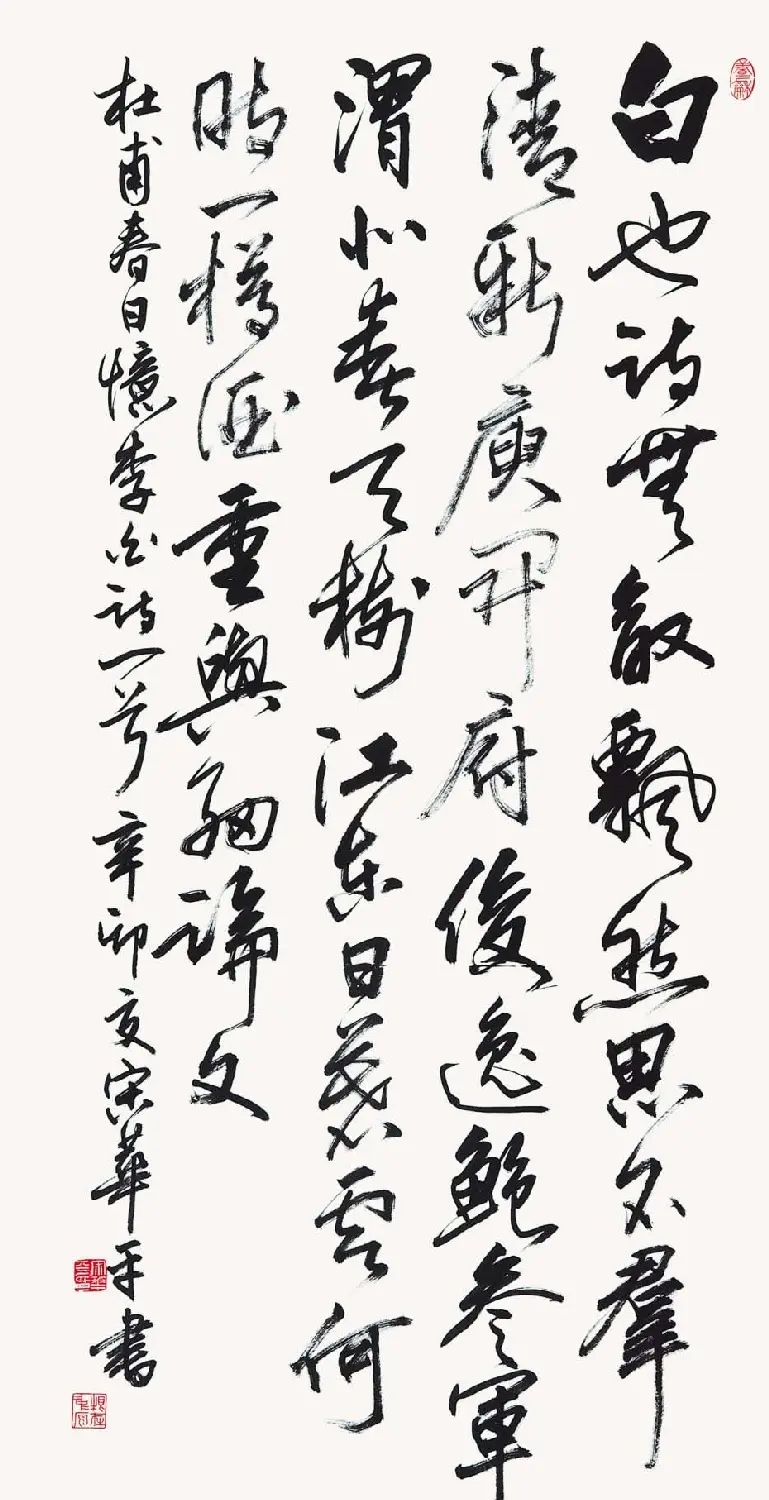 白也詩無敵飄然思不羣
清新庾開府俊逸鮑參軍
渭北春天樹江東日暮雲何
時一樽酒重與細論文
杜甫春日憶李白詩一首辛卯夏宋華平書